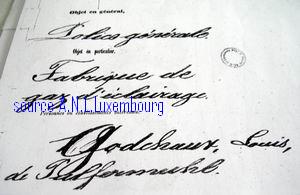 Objet en général.
Police générale.
Objet en particulier.
Fabrique de
gaz d'éclairage.
source A.N.Luxembourg
Personnes ou
Godchaux, Louis,
de Pulfermuhl.